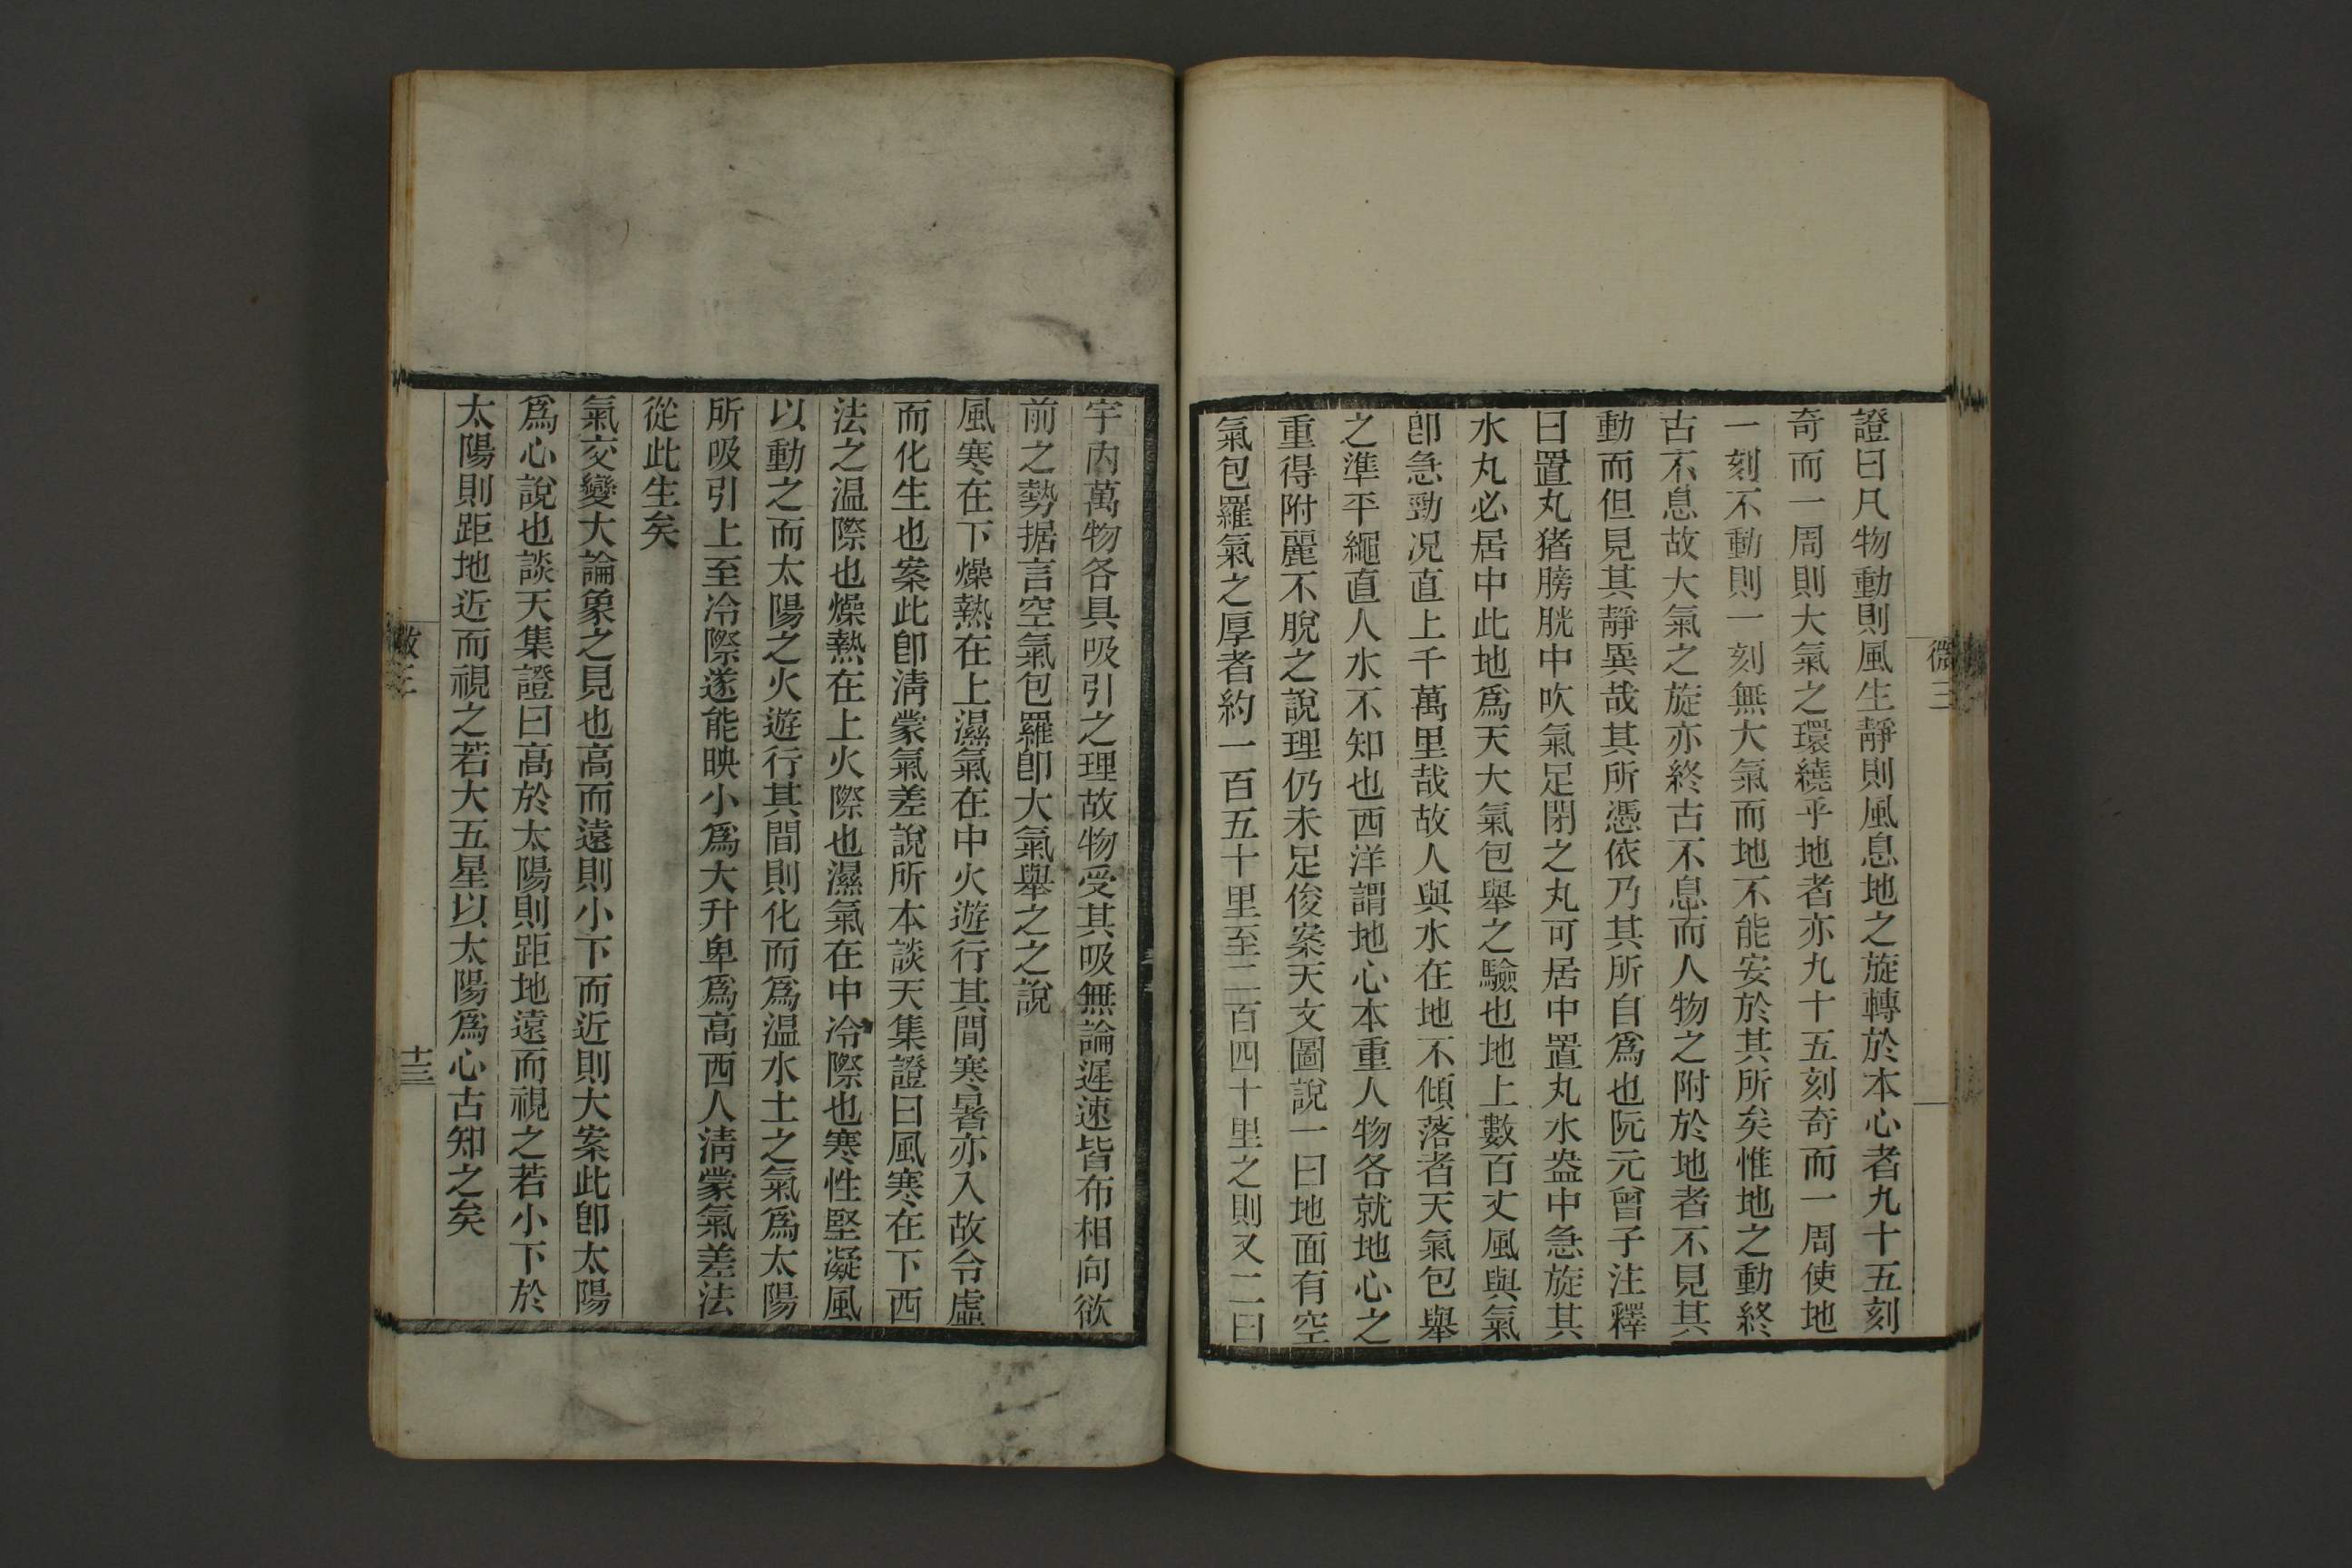 微三
證曰凡物動則風生靜則風息地之旋轉於本心者九十五刻
奇而一周則大氣之環繞乎地者亦九十五刻奇而一周使地
一刻不動則一刻無大氣而地不能安於其所矣惟地之動終
古不息故大氣之旋亦終古不息而人物之附於地者不見其
動而但見其靜異哉其所憑依乃其所自爲也阮元曾子注釋
曰置丸猪膀胱中吹氣足閉之丸可居中置丸水盎中急旋其
水丸必居中此地爲天大氣包舉之驗也地上數百丈風與氣
卽急勁况直上千萬里哉故人與水在地不傾落者天氣包舉
之準平繩直人水不知也西洋謂地心本重人物各就地心之
重得附麗不脫之說理仍未足俊案天文圖說一曰地面有空
氣包羅氣之厚者約一百五十里至二百四十里之則又二曰
宇內萬物各具吸引之理故物受其吸無論遲速皆布相向欲
前之勢据言空氣包羅卽大氣舉之之說
風寒在下燥熱在上濕氣在中火遊行其間寒暑亦入故令虛
而化生也案此卽淸蒙氣差說所本談天集證曰風寒在下西
法之温際也燥熱在上火際也濕氣在中冷際也寒性堅凝風
以動之而太陽之火遊行其間則化而爲温水土之氣爲太陽
所吸引上至冷際遂能映小爲大升卑爲高西人淸蒙氣差法
從此生矣
氣交變大論象之見也高而遠則小下而近則大案此卽太陽
爲心說也談天集證曰高於太陽則距地遠而視之若小下於
太陽則距地近而視之若大五星以太陽爲心古知之矣
十三